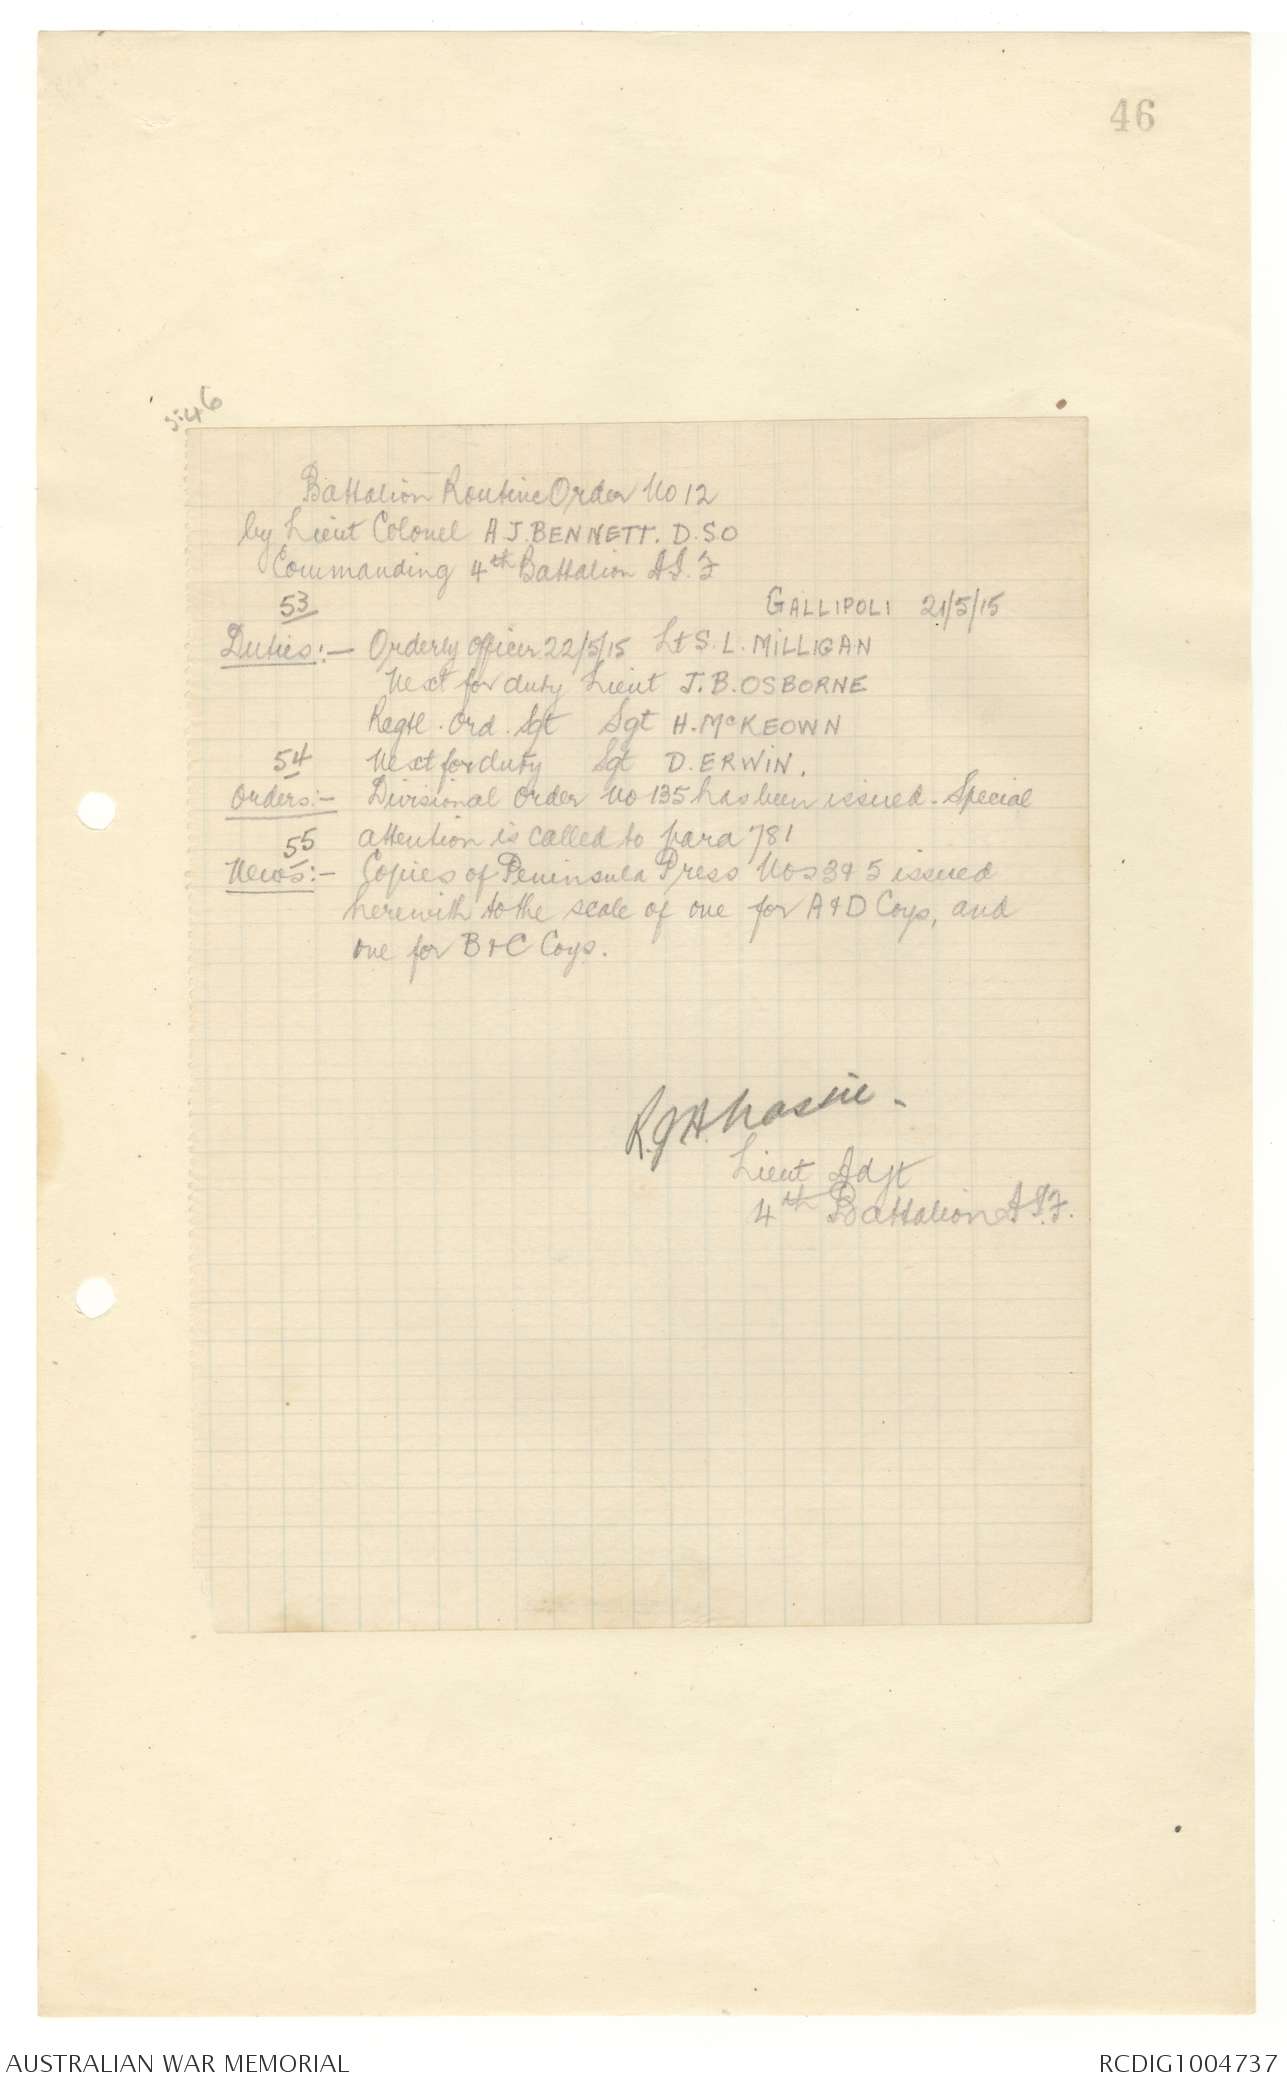 46
Battalion Routine Order No 12
by Lieut Colonel A J. BENNETT. D. S O
Commanding 4th Battalion A I. F
53
GALLIPOLI 21/5/15
Duties:- Orderly officer 22/5/15 Lt S. L. MILLIGAN
Next for duty Lieut J. B. OSBORNE
Regtl. Ord. Sgt Sgt H. McKEOWN
54 Next for duty Sgt D. ERWIN.
Orders:- Divisional Order No 135 has been issued. Special
attention is called to para 781
55
News:- Copies of Peninsula Press Nos 3 & 5 issued
herewith to the scale of one for A & D Coys, and
one for B & C Coys.
R. J A. Massie.
Lieut Adjt
4th Battalion A I. F.
AUSTRALIAN WAR MEMORIAL
RCDIG1004737